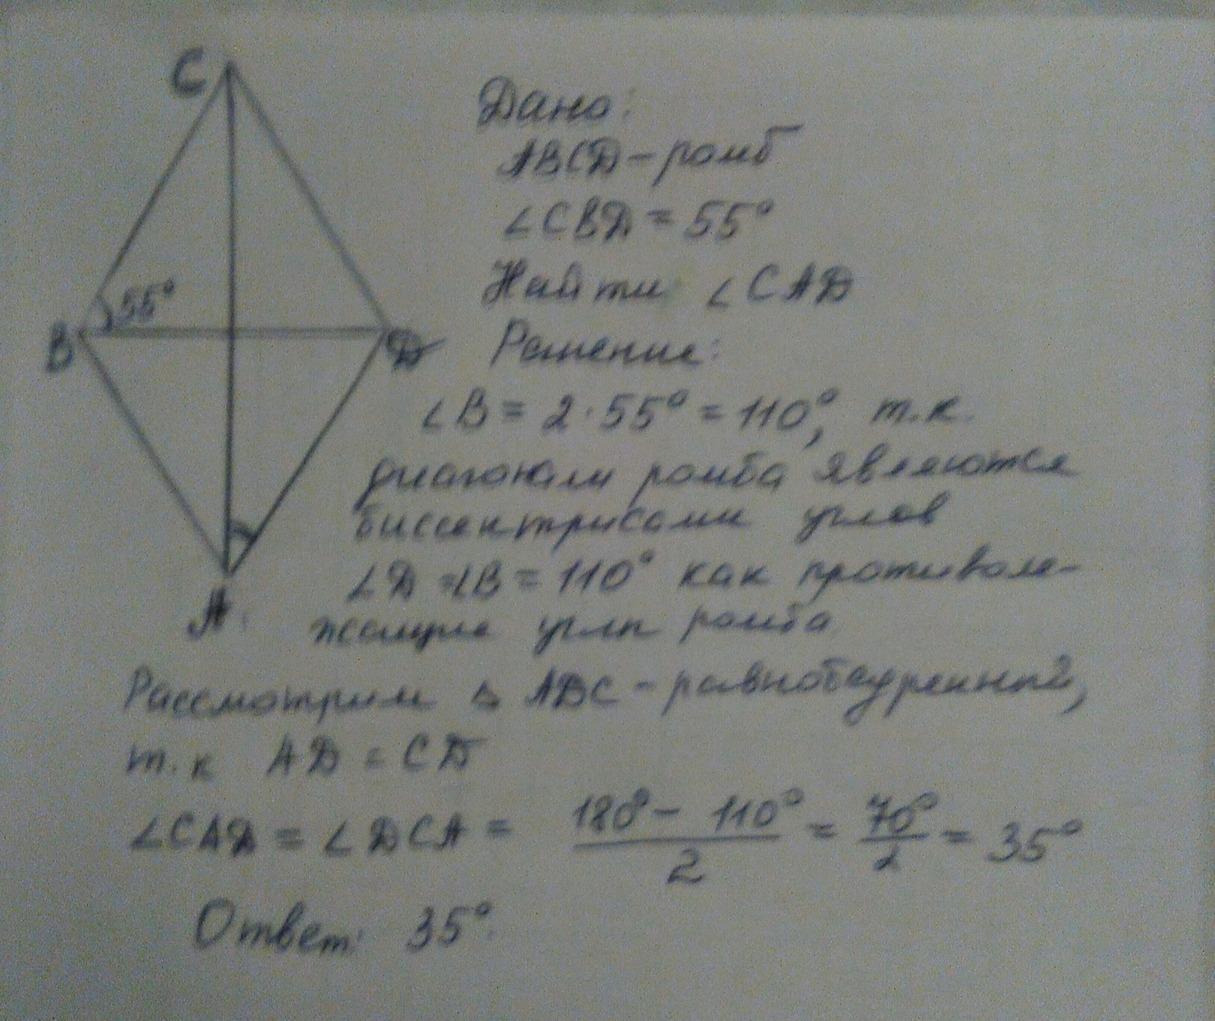 C
Дано:
ABCD - ромб
∠CBD = 55°
Найти ∠CAD
55°
B
D
Решение:
∠B = 2·55° = 110°, т.к.
диагонали ромба являются
биссектрисами углов
∠D = ∠B = 110° как противоле-
жащие углы ромба
A
Рассмотрим △ ADC - равнобедренный,
т.к AD = CD
∠CAD = ∠DCA = 180° - 110° / 2 = 70° / 2 = 35°
Ответ: 35°.